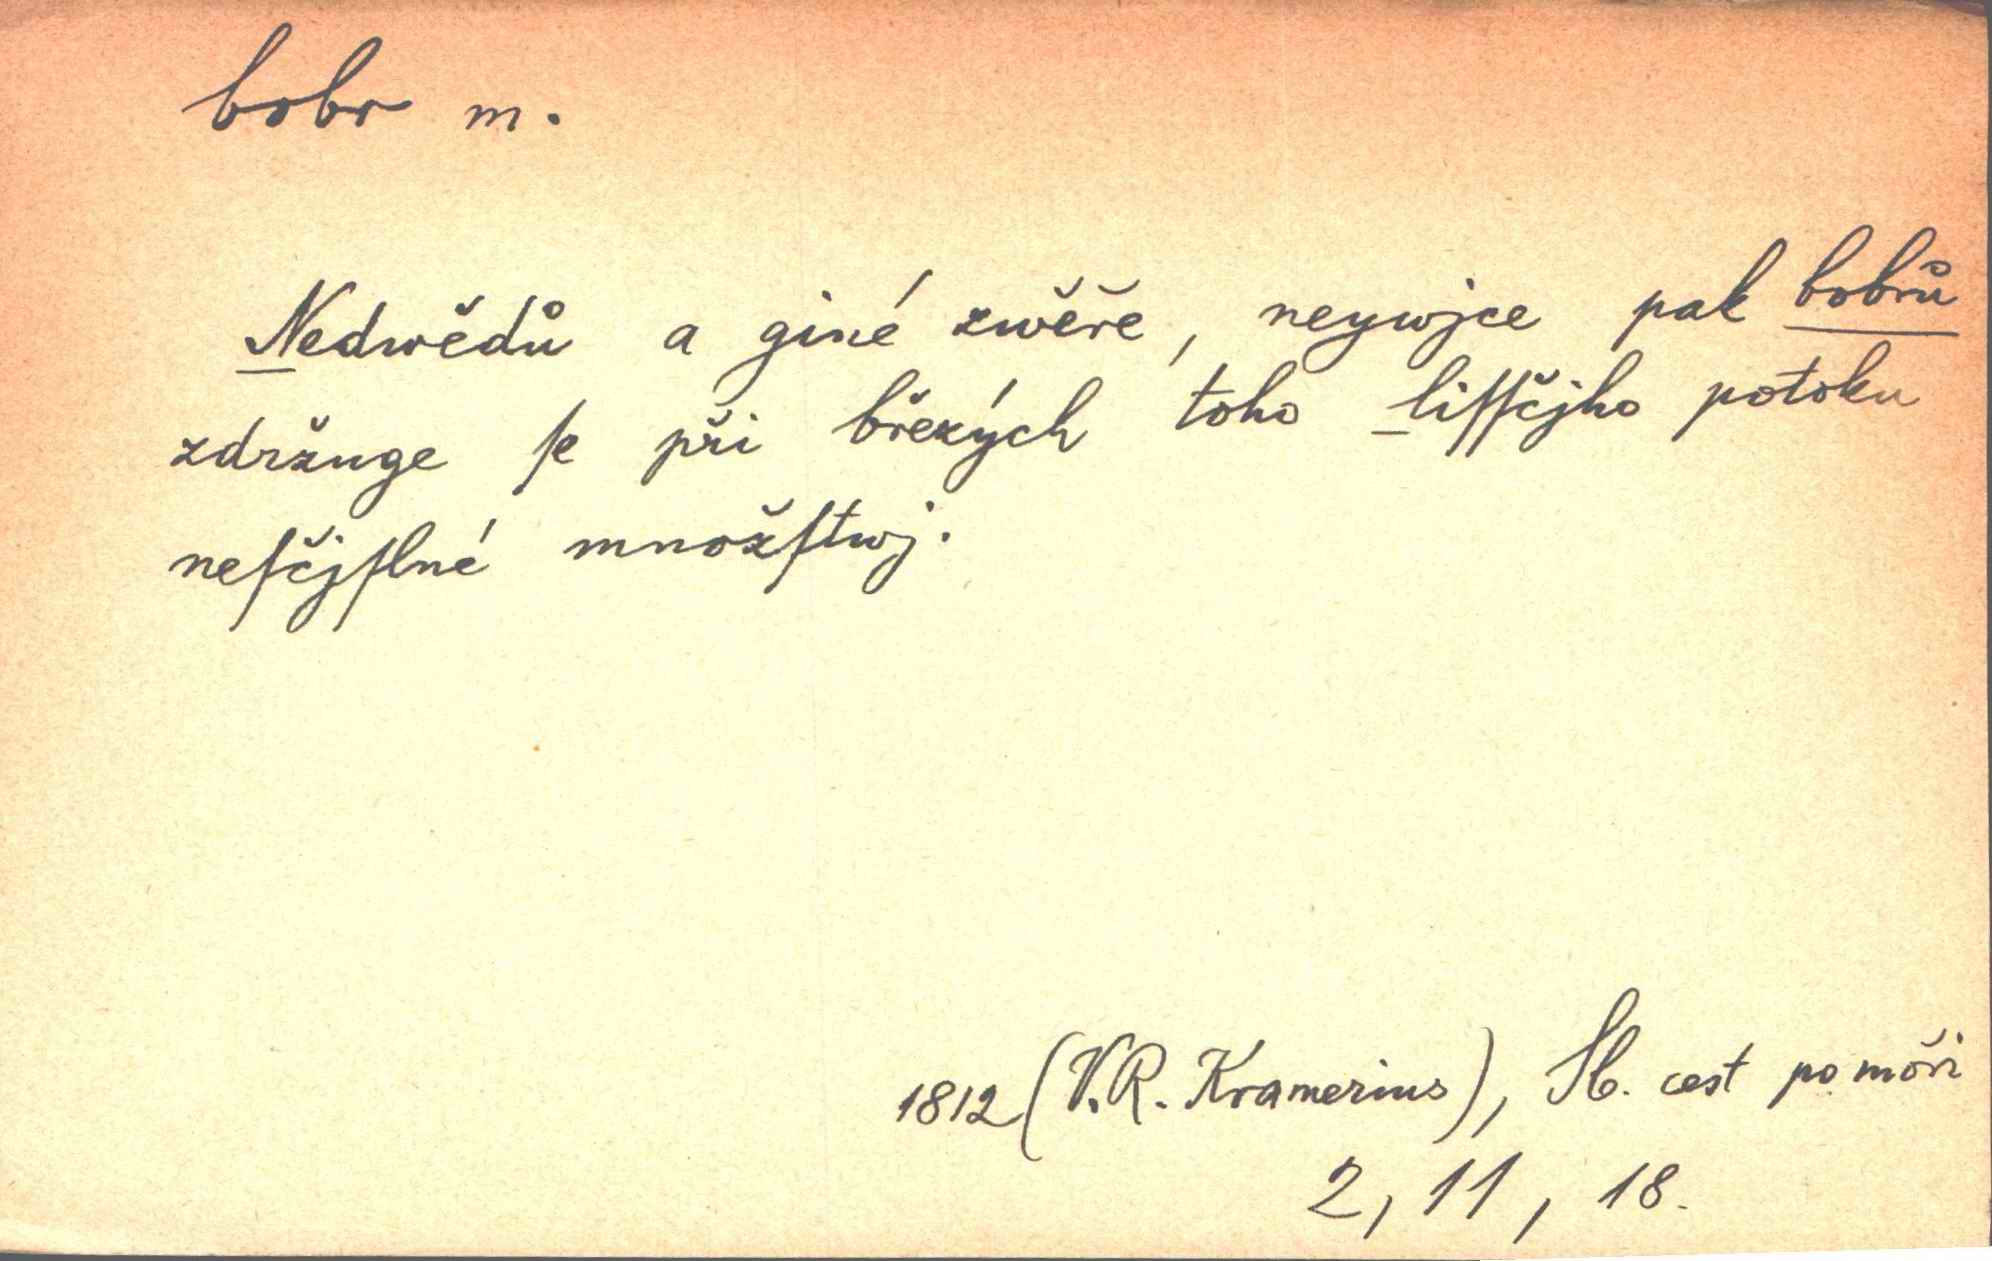 bobr m.
Nedwědů a giné zwěře, neywjce pak bobrů
zdržuge ſe při březých toho liſſčjho potoku
neſčjſlné množſtwj.
1812 (V.R. Kramerius), Sb. cest po moři
2, 11, 18.